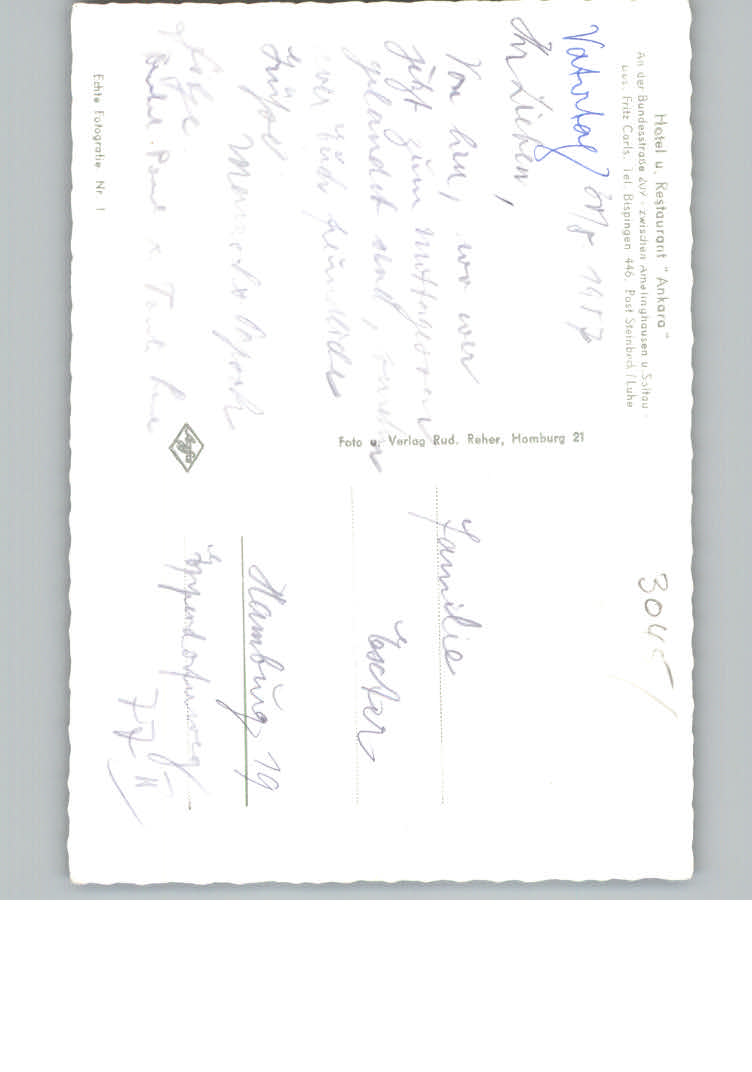 Hotel u. Restaurant "Ankara"
An der Bundesstraße 209 - zwischen Amelinghausen u Soltau -
Bes. Fritz Carls. Tel. Bispingen 446. Post Steinbeck / Luhe
Vatertag 1957
Ihr Lieben,
Von hier, wo wir
jetzt zum Mittagessen
gelandet sind senden
wir Euch freundliche
Grüße.
Onkel Paul + Tante
Echte Fotografie Nr. 1
Foto u. Verlag Rud. Reher, Hamburg 21
Agfa
3045
Familie
Escher
Hamburg 19
Eppendorferweg
77 II